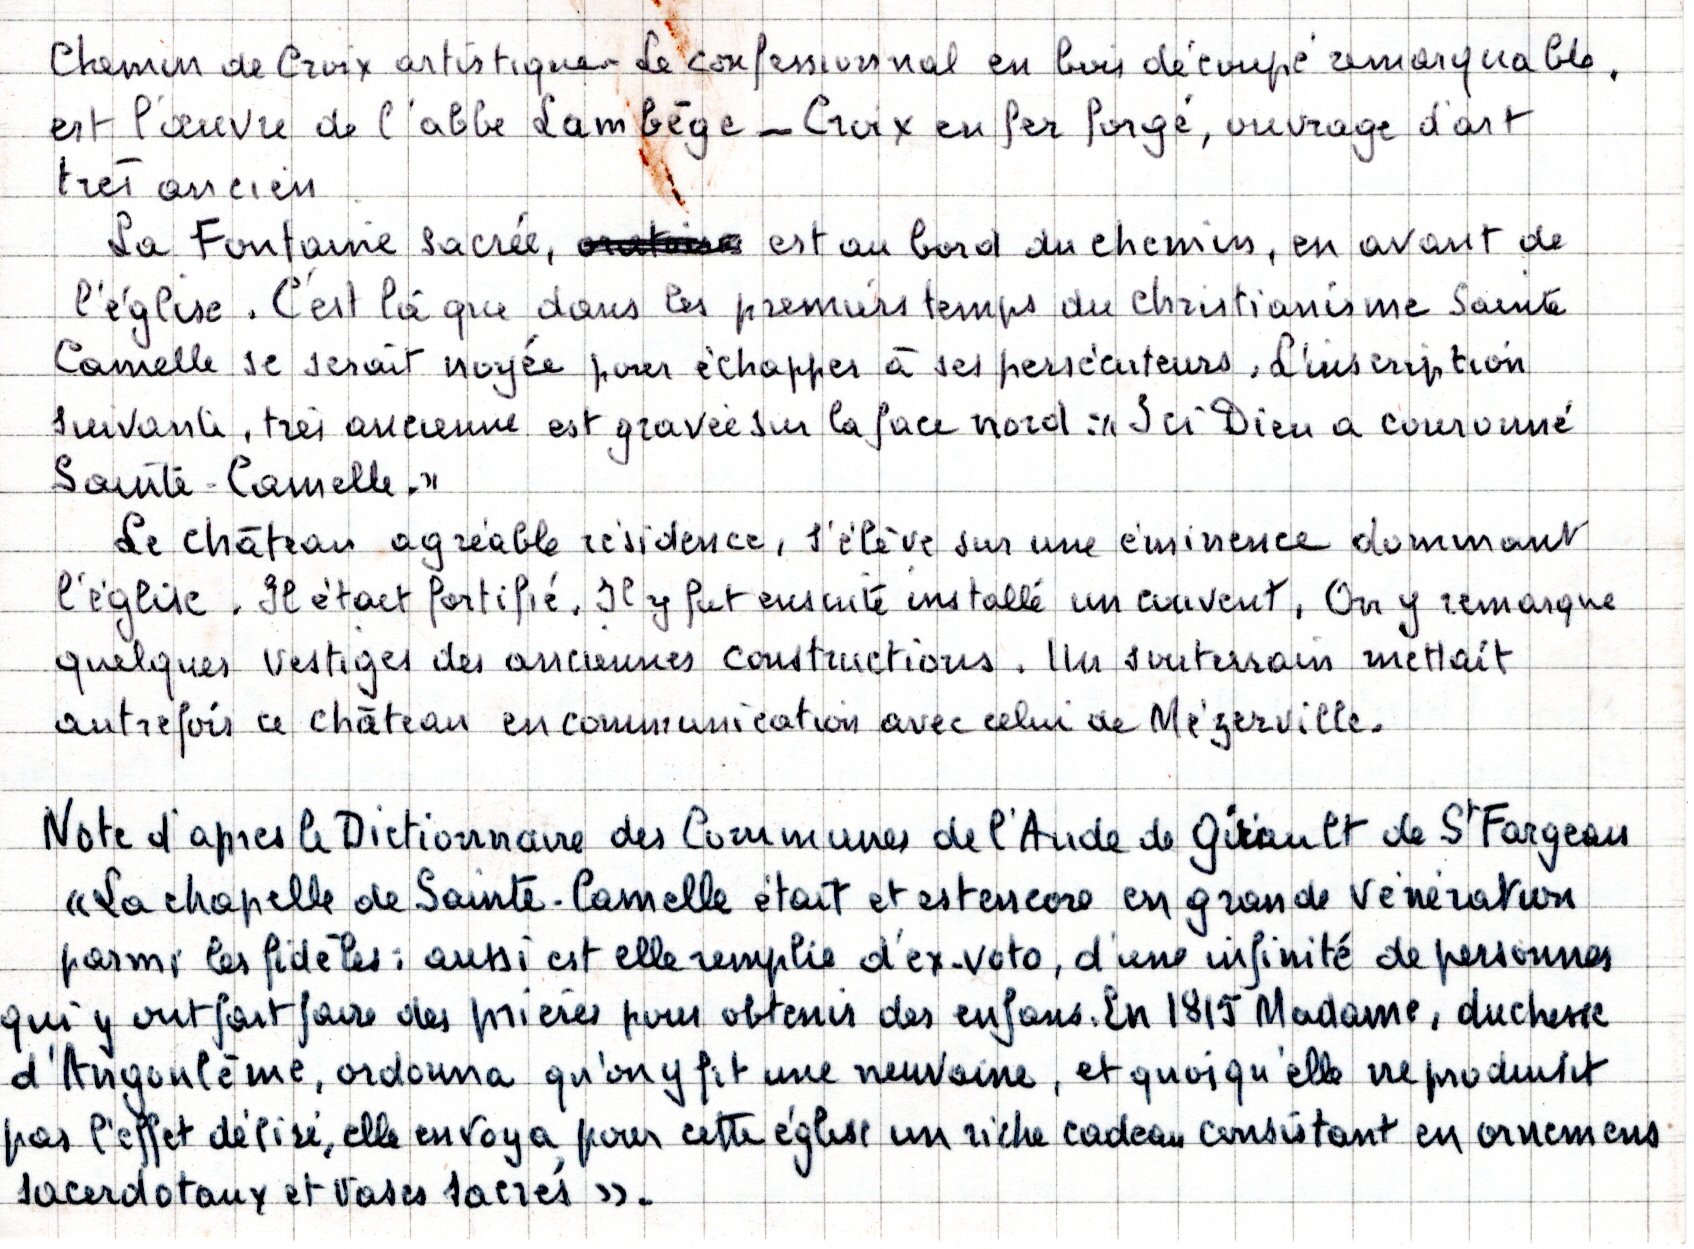 Chemin de Croix artistique - Le confessionnal en bois découpé remarquable.
est l'œuvre de l'abbe Lambège - Croix en fer forgé, ouvrage d'art
très ancien
La Fontaine sacrée, oratoire est au bord du chemin, en avant de
l'église. C'est là que dans les premiers temps du Christianisme Sainte
Camelle se serait noyée pour échapper à ses persécuteurs. L'inscription
suivante, très ancienne est gravée sur la face nord : « Ici Dieu a couronné
Sainte-Camelle. »
Le château agréable résidence, s'élève sur une éminence dominant
l'église. Il était fortifié. Il y fut ensuite installé un couvent. On y remarque
quelques vestiges des anciennes constructions. Un souterrain mettait
autrefois ce château en communication avec celui de Mézerville.
Note d'apres le Dictionnaire des Communes de l'Aude de Girault de St Fargeau
« La chapelle de Sainte-Camelle était et est encore en grande vénération
parmi les fidèles : aussi est elle remplie d'ex-voto, d'une infinité de personnes
qui y ont fait faire des prières pour obtenir des enfans. En 1815 Madame, duchesse
d'Angoulême, ordonna qu'on y fit une neuvaine, et quoiqu'elle ne produisit
pas l'effet désiré, elle envoya pour cette église un riche cadeau consistant en ornemens
sacerdotaux et vases sacrés ».